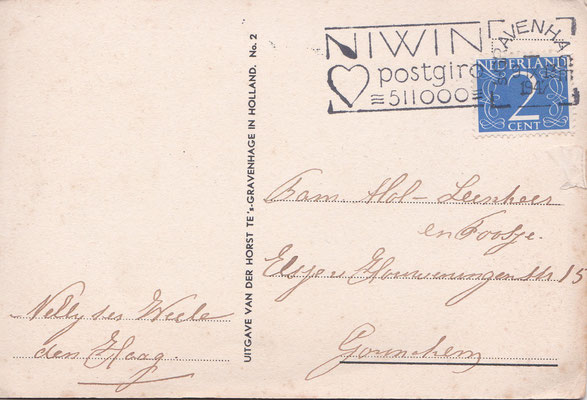 NIWIN
postgiro
≡511000≡
'S GRAVENHA
1947
NEDERLAND
2
CENT
UITGAVE VAN DER HORST TE 's-GRAVENHAGE IN HOLLAND. No. 2
Fam. Hol-Leenheer
en Toosje.
Elsje v Houweningenstr 15
Gorinchem
Nelly ter Weele
den Haag.